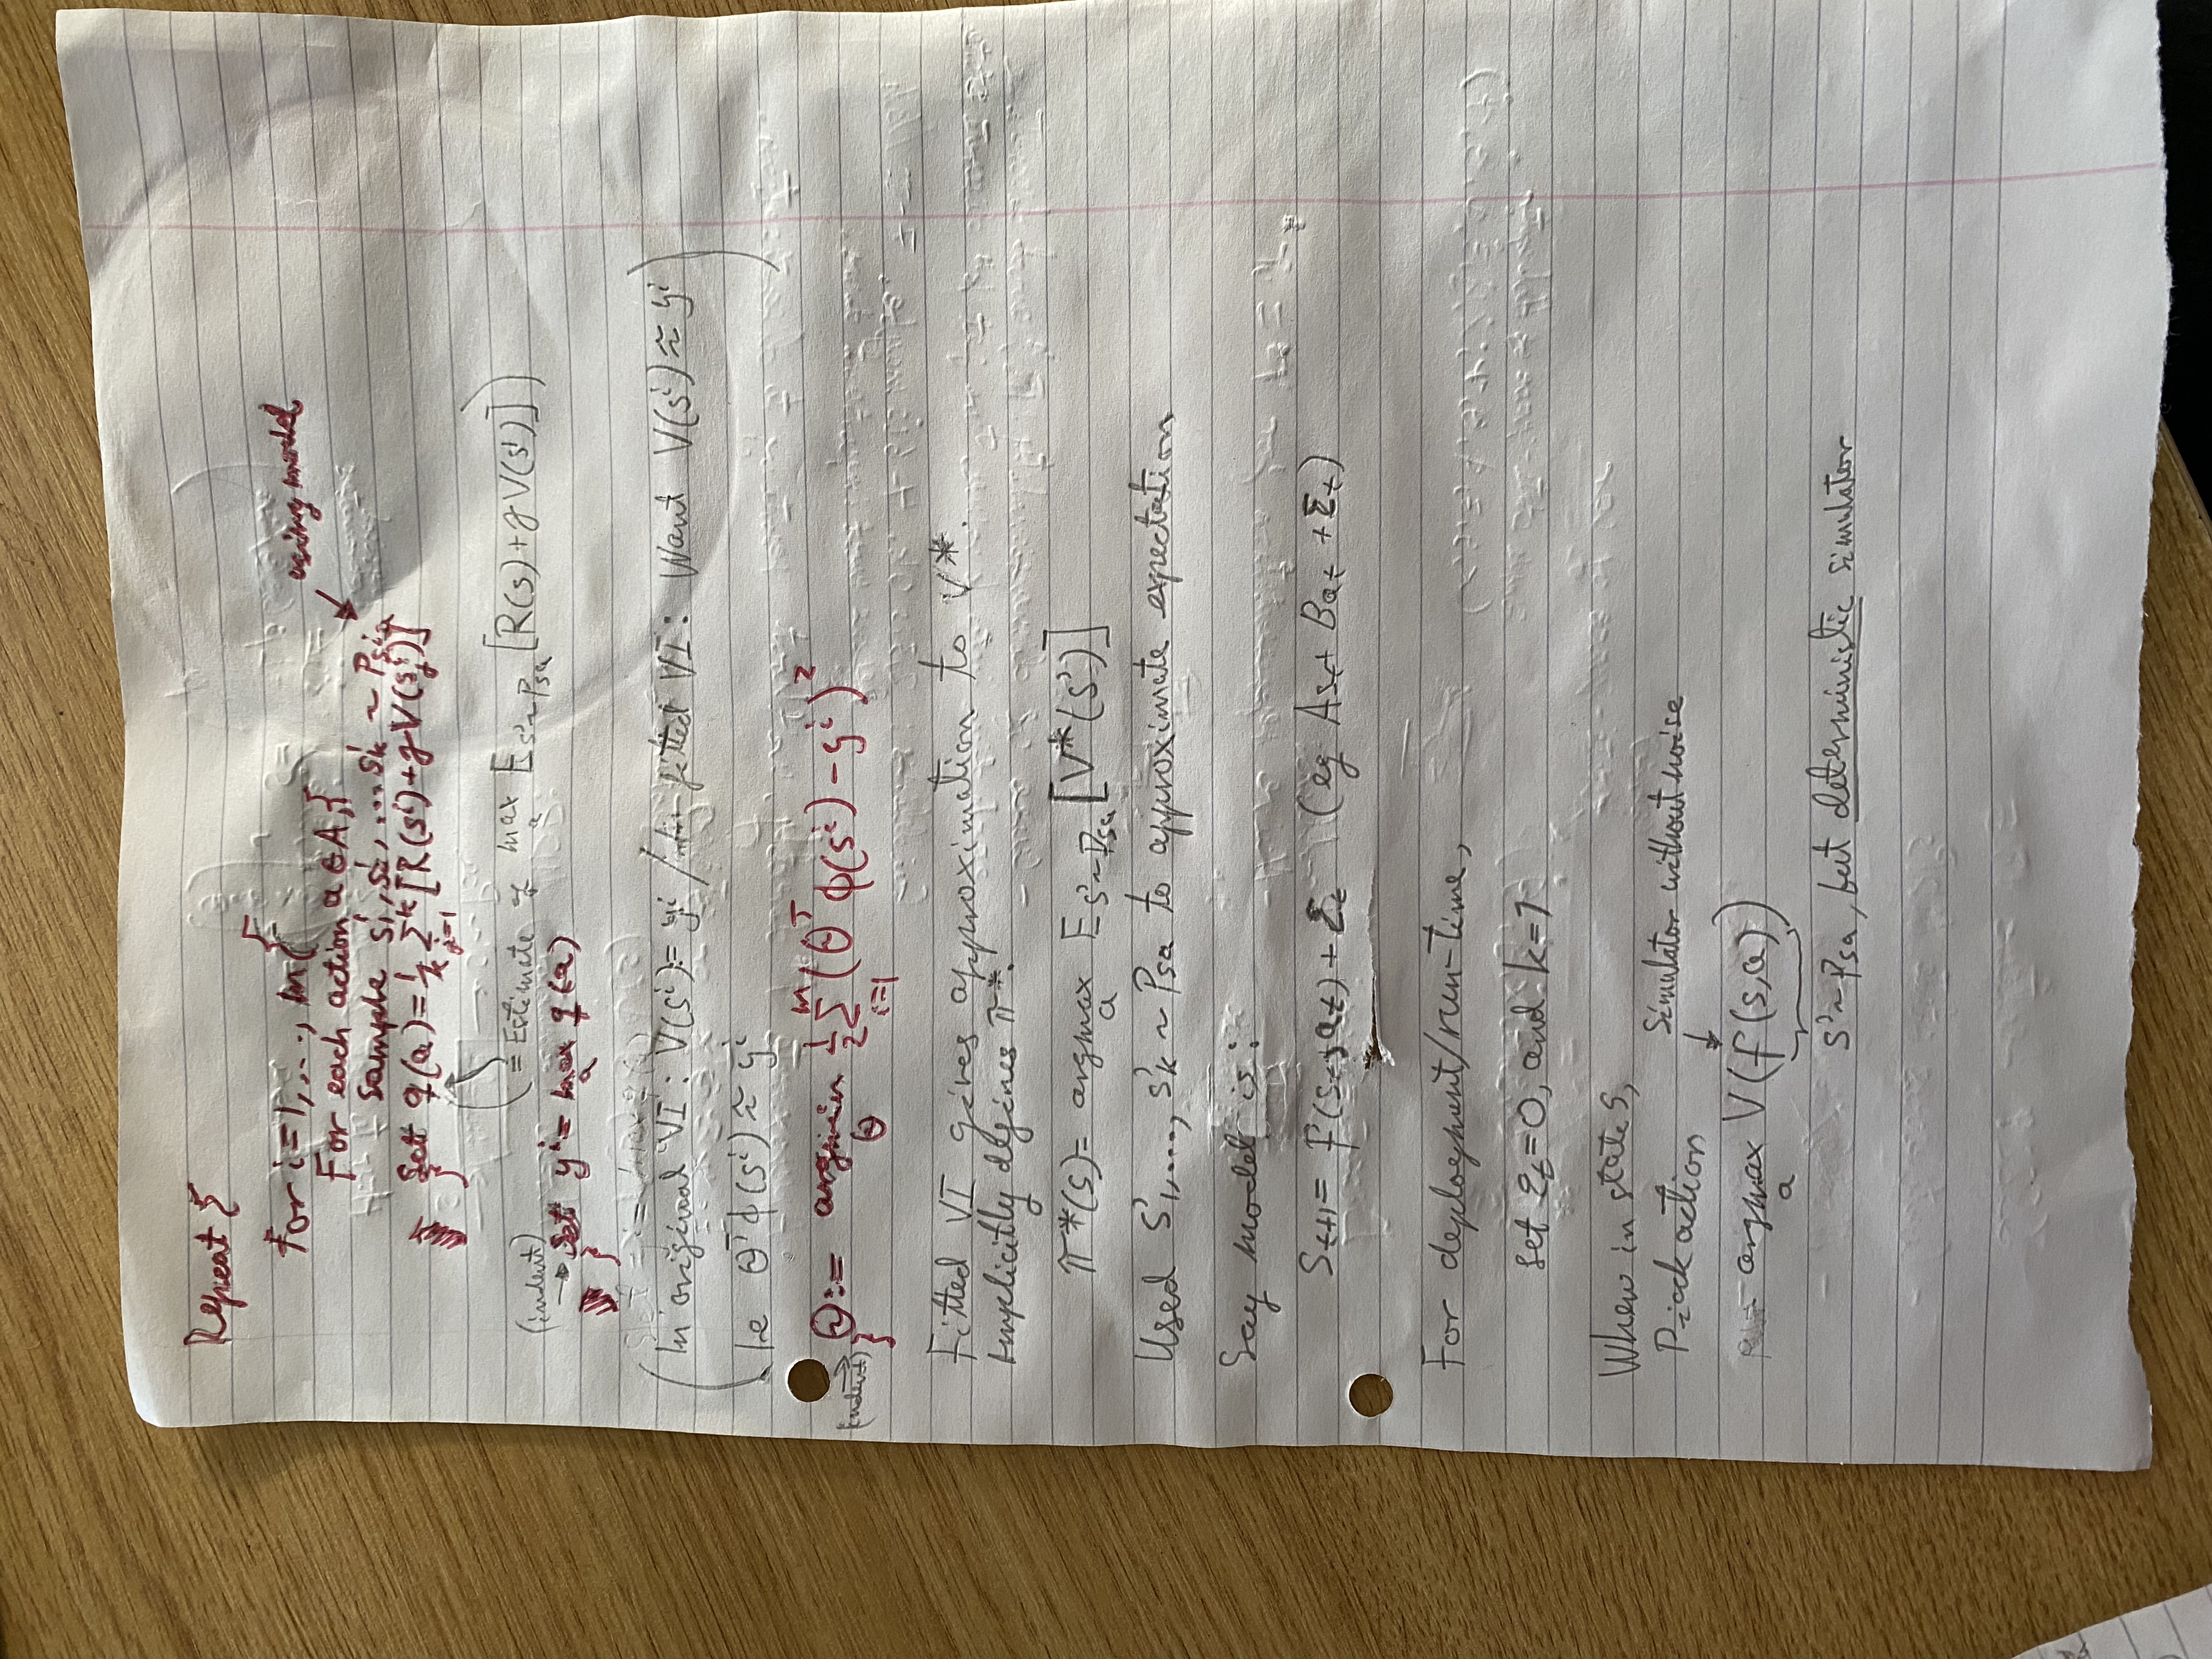 Repeat {
For i=1,..., m {
using model
For each action a ∈ A, {
Sample s'1, s'2, ... s'k ~ Psia
Set q(a) = 1/k Σ_{j=1}^{k} [R(s^i) + γV(s'_j)]
}
(= Estimate of max_a E_{s'~Psa} [R(s) + γV(s')])
(indent)
→ Set y^i = max_a q(a)
}
(In original VI: V(s^i) = y^i / In fitted VI: Want V(s^i) ≈ y^i
Ie θ^T φ(s^i) ≈ y^i)
(indent) → θ := argmin_θ 1/2 Σ_{i=1}^{m} (θ^T φ(s^i) - y^i)^2
}
Fitted VI gives approximation to V*.
Implicitly defines π*.
π*(s) = argmax_a E_{s'~Psa} [V*(s')]
Used s'1,..., s'k ~ Psa to approximate expectation
Say model is:
S_{t+1} = f(s_t, a_t) + Σ_t (eg As_t + Ba_t + Σ_t)
For deployment/run-time,
set Σ_t = 0, and k=1
When in state s,
Pick action
Simulator without noise
↓
argmax_a V(f(s,a))
s' ~ Psa, but deterministic simulator